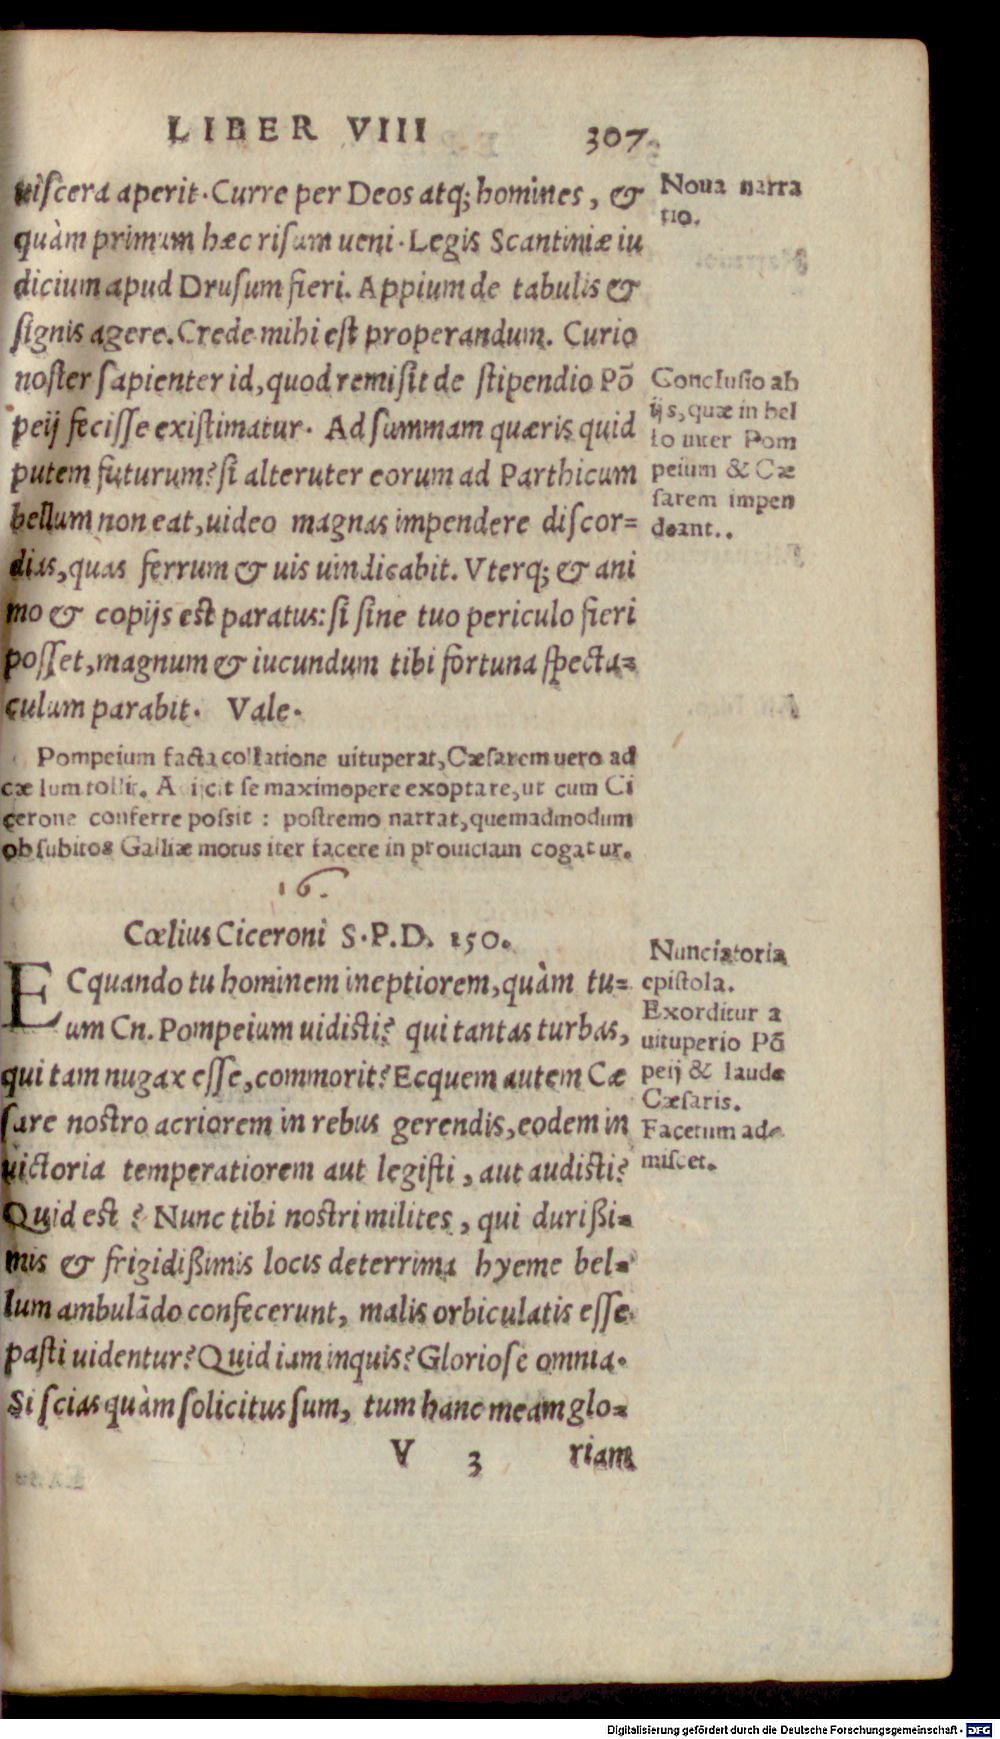 LIBER VIII 307.
uiscera aperit. Curre per Deos atq; homines, &
quàm primum hæc risum ueni. Legis Scantiniæ iu
dicium apud Drusum fieri. Appium de tabulis &
signis agere. Crede mihi est properandum. Curio
noster sapienter id, quod remisit de stipendio Põ
peij fecisse existimatur. Ad summam quæris quid
putem futurum? si alteruter eorum ad Parthicum
bellum non eat, uideo magnas impendere discor=
dias, quas ferrum & uis uindicabit. Vterq; & ani
mo & copijs est paratus: si sine tuo periculo fieri
posset, magnum & iucundum tibi fortuna specta=
culum parabit. Vale.
Noua narra
tio.
Conclusio ab
ijs, quæ in bel
lo inter Pom
peium & Cæ
sarem impen
deant..
Pompeium facta collatione uituperat, Cæsarem uero ad
cælum tollit. Adijcit se maximopere exoptare, ut cum Ci
cerone conferre possit : postremo narrat, quemadmodum
ob subitos Galliæ motus iter facere in prouiciam cogatur.
16.
Cœlius Ciceroni S.P.D. 150.
ECquando tu hominem ineptiorem, quàm tu=
um Cn. Pompeium uidisti? qui tantas turbas,
qui tam nugax esse, commorit? Ecquem autem Cæ
sare nostro acriorem in rebus gerendis, eodem in
uictoria temperatiorem aut legisti, aut audisti?
Quid est ? Nunc tibi nostri milites, qui durißi=
mis & frigidißimis locis deterrima hyeme bel=
lum ambulãdo confecerunt, malis orbiculatis esse
pasti uidentur? Quid iam inquis? Gloriose omnia.
Si scias quàm solicitus sum, tum hanc meam glo=
Nunciatoria
epistola.
Exorditur a
uituperio Põ
peij & laude
Cæsaris.
Facetum ad=
miscet.
V 3 riam
Digitalisierung gefördert durch die Deutsche Forschungsgemeinschaft - DFG